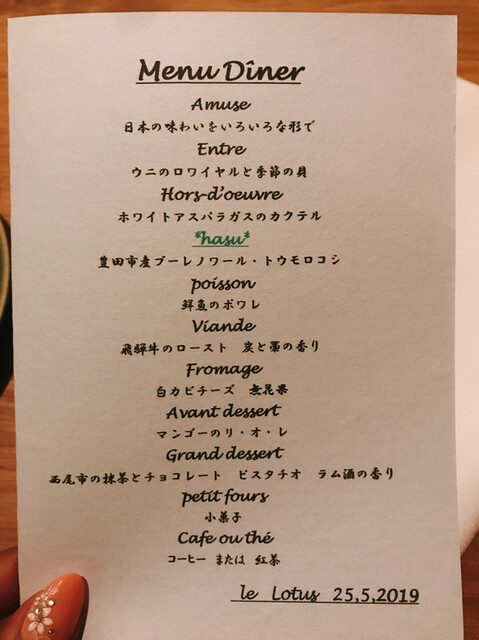 Menu Dîner
Amuse
日本の味わいをいろいろな形で
Entre
ウニのロワイヤルと季節の貝
Hors-d'oeuvre
ホワイトアスパラガスのカクテル
*hasu*
豊田市産プーレノワール・トウモロコシ
poisson
鮮魚のポワレ
Viande
飛騨牛のロースト 炭と藁の香り
Fromage
白カビチーズ 無花果
Avant dessert
マンゴーのリ・オ・レ
Grand dessert
西尾市の抹茶とチョコレート ピスタチオ ラム酒の香り
petit fours
小菓子
Cafe ou thé
コーヒー または 紅茶
le Lotus 25,5,2019